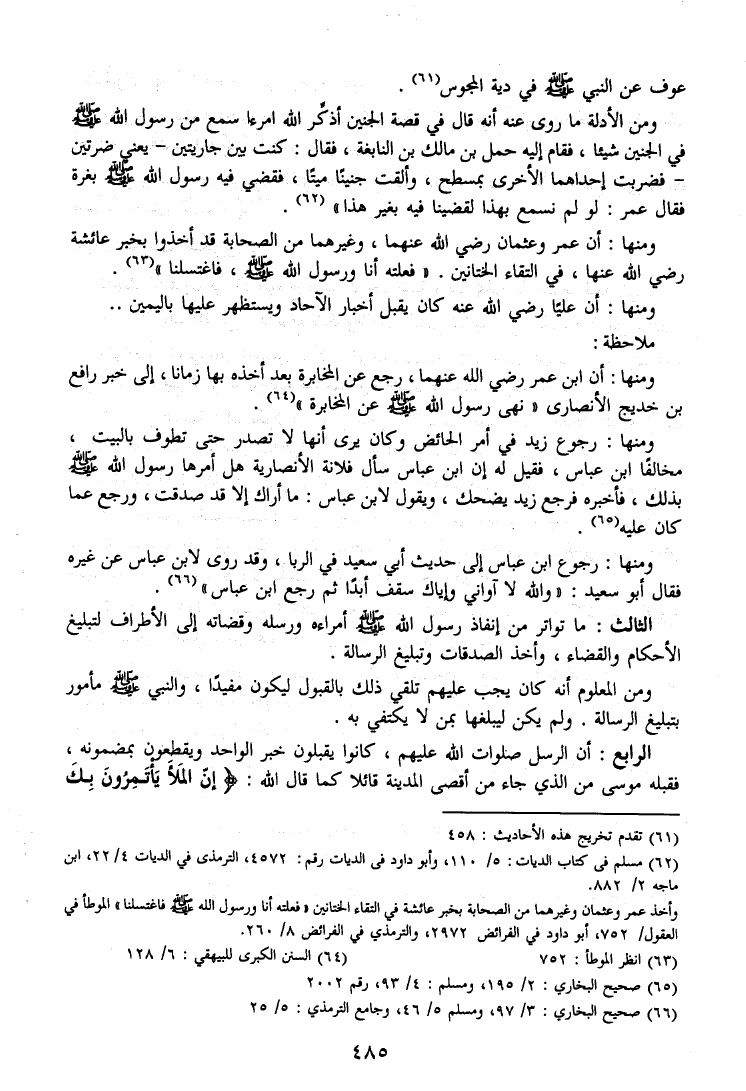 عوف عن النبي ﷺ في دية المجوس(٦١) .
ومن الأدلة ما روى عنه أنه قال في قصة الجنين أذكّر الله امرءا سمع من رسول الله ﷺ
في الجنين شيئا ، فقام إليه حمل بن مالك بن النابغة ، فقال : كنت بين جاريتين – يعني ضرتين
– فضربت إحداهما الأخرى بمسطح ، وألقت جنينًا ميتًا ، فقضي فيه رسول الله ﷺ بغرة
فقال عمر : لو لم نسمع بهذا لقضينا فيه بغير هذا» (٦٢) .
ومنها : أن عمر وعثمان رضي الله عنهما ، وغيرهما من الصحابة قد أخذوا بخبر عائشة
رضي الله عنها ، في التقاء الختانين . « فعلته أنا ورسول الله ﷺ ، فاغتسلنا »(٦٣) .
ومنها : أن عليًا رضي الله عنه كان يقبل أخبار الآحاد ويستظهر عليها باليمين ..
ملاحظة :
ومنها : أن ابن عمر رضي الله عنهما ، رجع عن المخابرة بعد أخذه بها زمانا ، إلى خبر رافع
بن خديج الأنصارى « نهى رسول الله ﷺ عن المخابرة »(٦٤) .
ومنها : رجوع زيد في أمر الحائض وكان يرى أنها لا تصدر حتى تطوف بالبيت ،
مخالفًا ابن عباس ، فقيل له إن ابن عباس سأل فلانة الأنصارية هل أمرها رسول الله ﷺ
بذلك ، فأخبره فرجع زيد يضحك ، ويقول لابن عباس : ما أراك إلا قد صدقت ، ورجع عما
كان عليه(٦٥) .
ومنها : رجوع ابن عباس إلى حديث أبي سعيد في الربا ، وقد روى لابن عباس عن غيره
فقال أبو سعيد : «والله لا آواني وإياك سقف أبدًا ثم رجع ابن عباس» (٦٦) .
الثالث : ما تواتر من إنفاذ رسول الله ﷺ أمراءه ورسله وقضاته إلى الأطراف لتبليغ
الأحكام والقضاء ، وأخذ الصدقات وتبليغ الرسالة .
ومن المعلوم أنه كان يجب عليهم تلقي ذلك بالقبول ليكون مفيدًا ، والنبي ﷺ مأمور
بتبليغ الرسالة . ولم يكن ليبلغها بمن لا يكتفي به .
الرابع : أن الرسل صلوات الله عليهم ، كانوا يقبلون خبر الواحد ويقطعون بمضمونه ،
فقبله موسى من الذي جاء من أقصى المدينة قائلا كما قال الله : ﴿ إِنّ المَلأَ يَأْتَمِرُونَ بِكَ
(٦١) تقدم تخريج هذه الأحاديث : ٤٥٨
(٦٢) مسلم فى كتاب الديات : ٥/ ١١٠، وأبو داود فى الديات رقم : ٤٥٧٢، الترمذى في الديات ٤/ ٢٢، ابن
ماجه ٢/ ٨٨٢.
وأخذ عمر وعثمان وغيرهما من الصحابة بخبر عائشة في التقاء الختانين « فعلته أنا ورسول الله ﷺ فاغتسلنا » الموطأ في
العقول/ ٧٥٢، أبو داود في الفرائض ٢٩٧٢، والترمذي في الفرائض ٨/ ٢٦٠.
(٦٣) انظر الموطأ : ٧٥٢ (٦٤) السنن الكبرى للبيهقي : ٦/ ١٢٨
(٦٥) صحيح البخاري : ٢/ ١٩٥، ومسلم : ٤/ ٩٣، رقم ٢٠٠٢
(٦٦) صحيح البخاري : ٣/ ٩٧، ومسلم ٥/ ٤٦، وجامع الترمذي : ٥/ ٢٥
٤٨٥